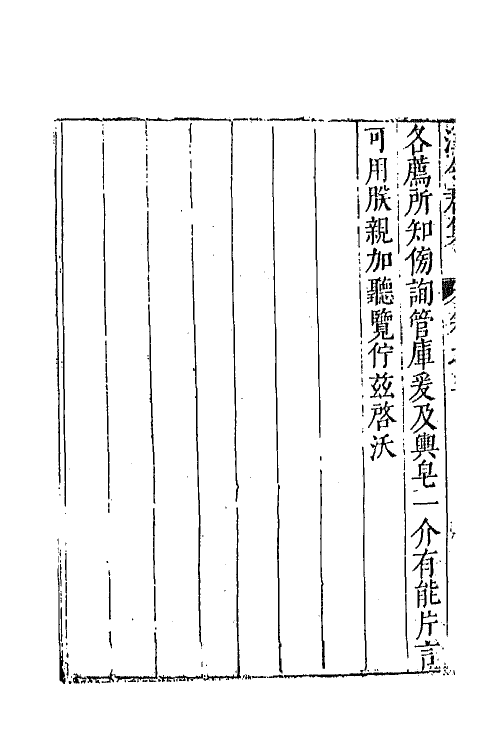 各薦所知傍詢管庫爰及輿皂一介有能片言
可用朕親加聽覽佇兹啓沃